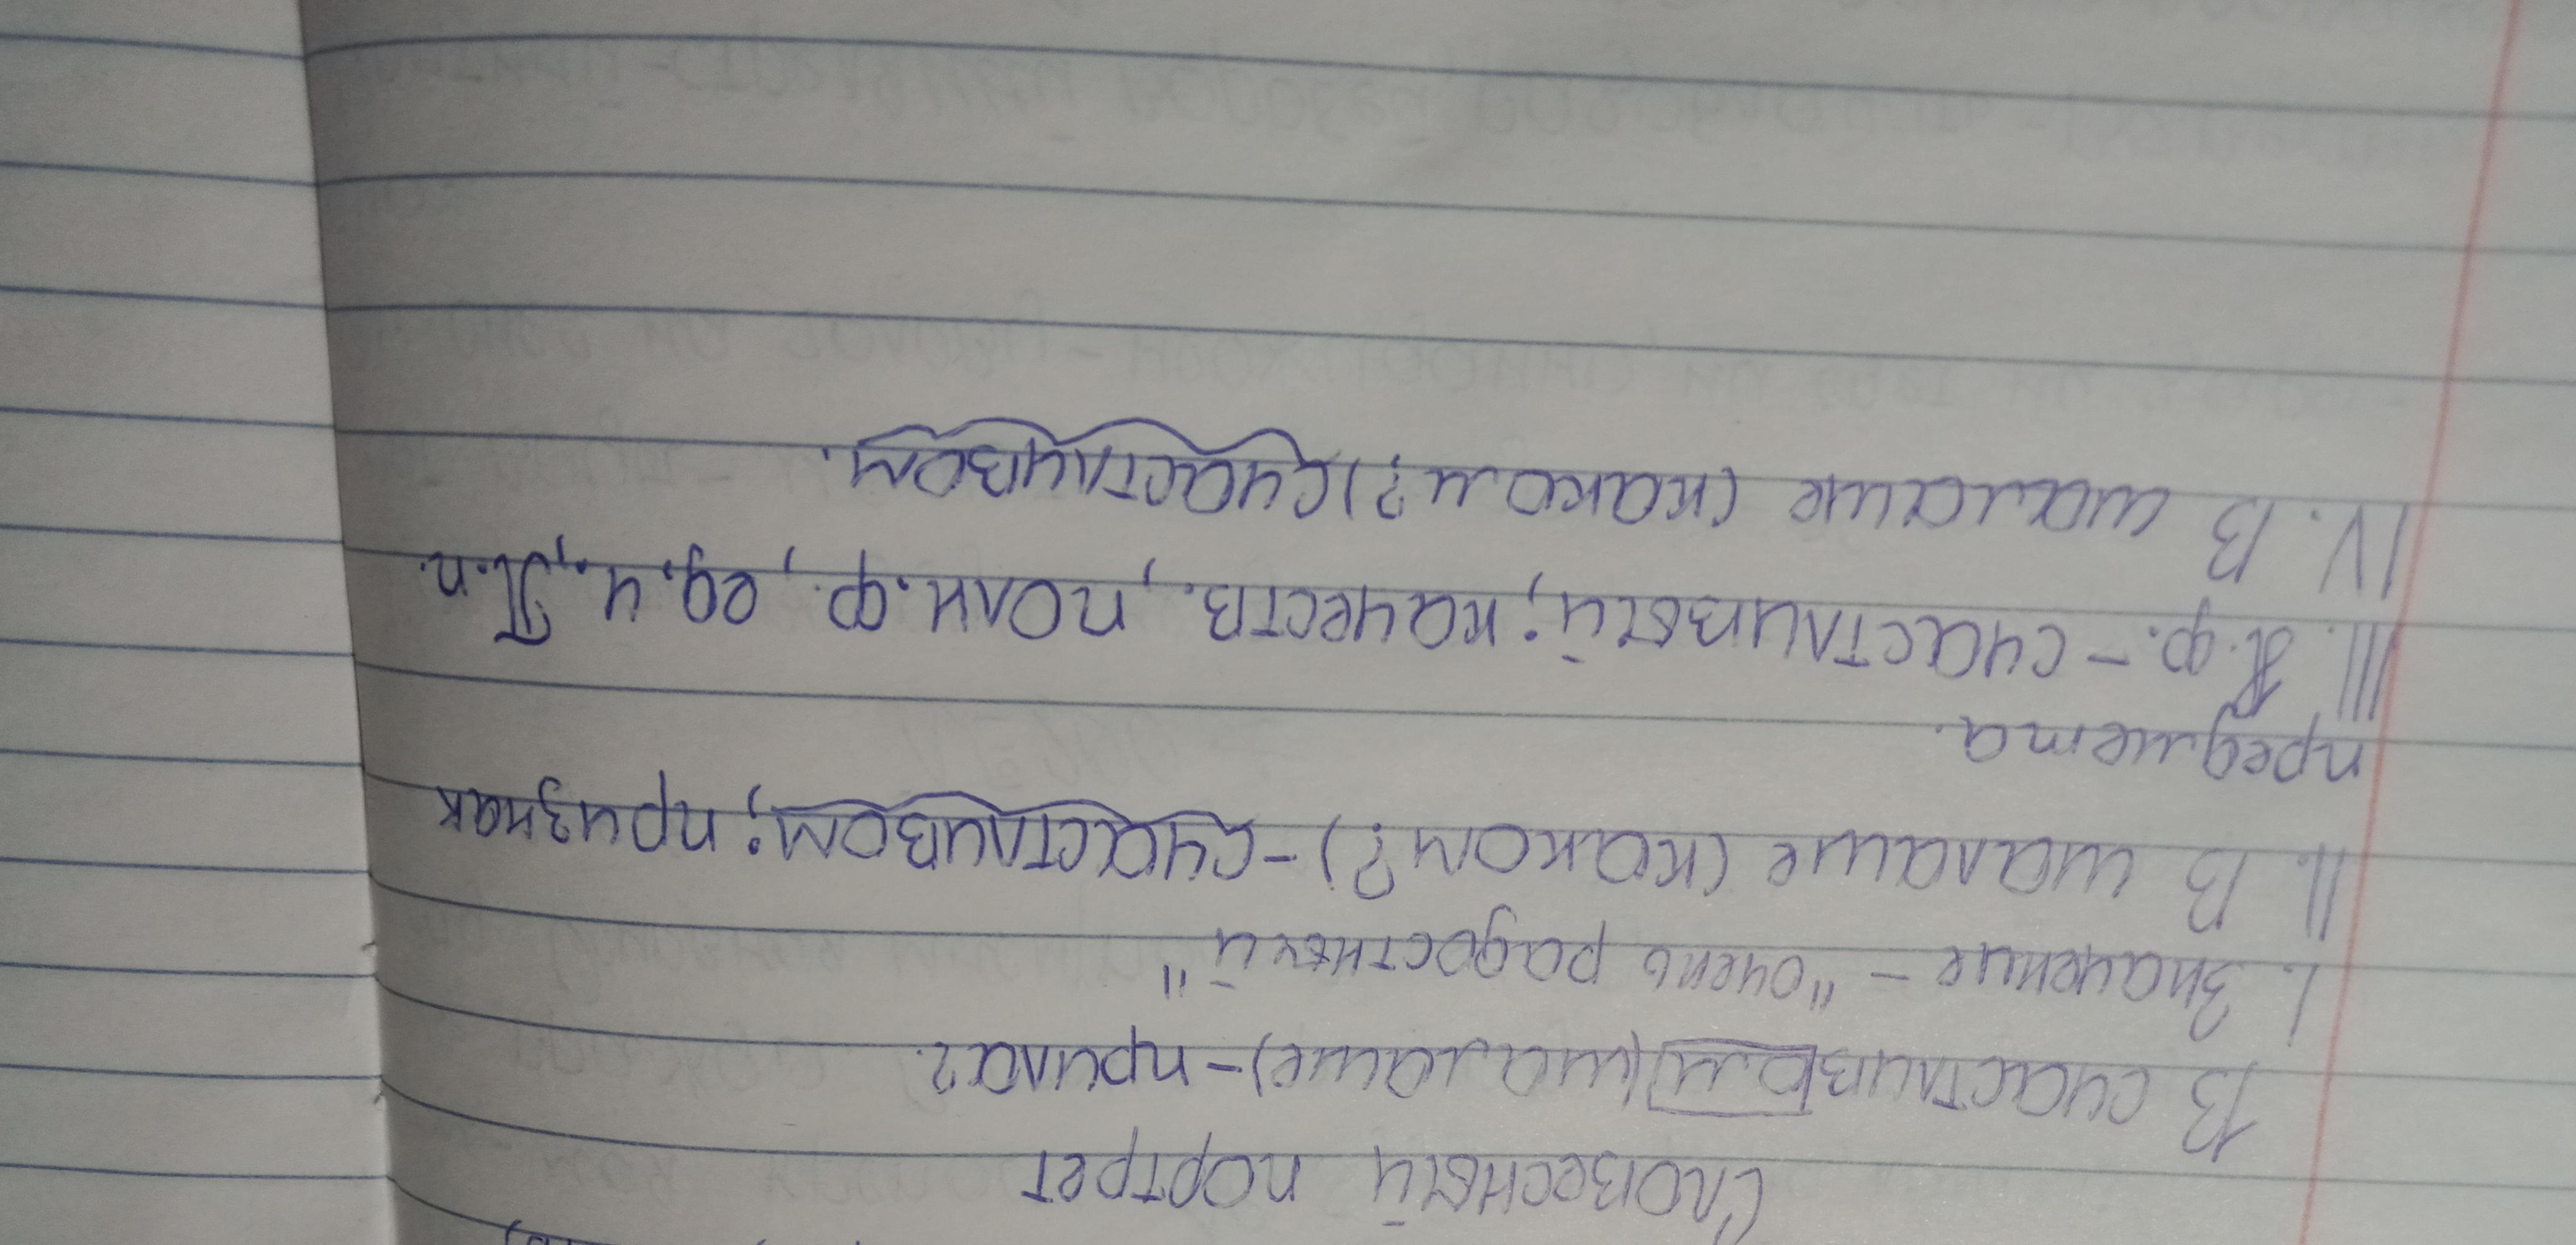 Словесный портрет
В счастливом (шалаше) - прилаг.
I. Значение - "очень радостный"
II. В шалаше (каком?) - счастливом; признак
предмета.
III. Н.ф. - счастливый; качеств., полн.ф., ед.ч., П.п.
IV. В шалаше (каком?) счастливом.